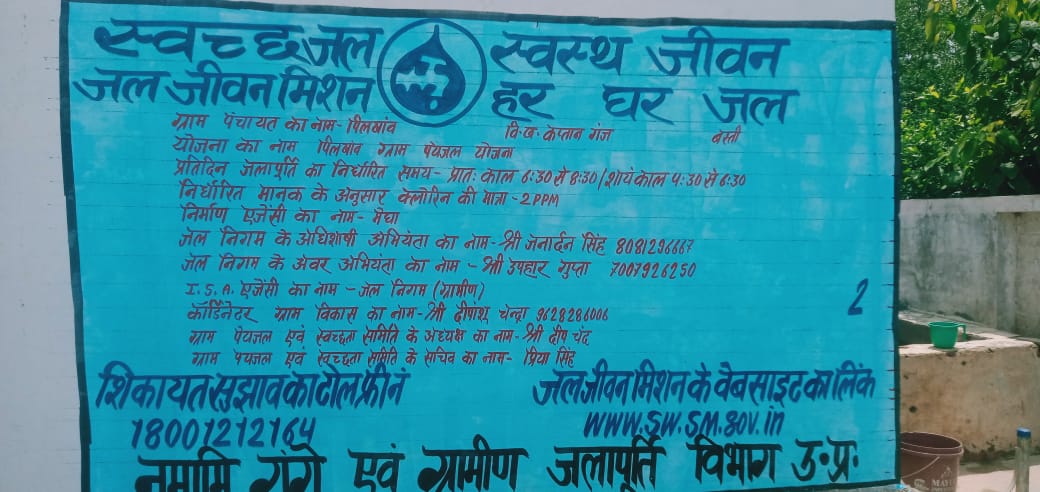 स्वच्छ जल स्वस्थ जीवन
जल जीवन मिशन हर घर जल
ग्राम पंचायत का नाम- पिलखांव वि.ख. कप्तान गंज बस्ती
योजना का नाम पिलखांव ग्राम पेयजल योजना
प्रतिदिन जलापूर्ति का निर्धारित समय- प्रातः काल 6:30 से 8:30/शायं काल 4:30 से 6:30
निर्धारित मानक के अनुसार क्लोरिन की मात्रा - 2PPM
निर्माण एजेंसी का नाम- मेघा
जल निगम के अधिशाषी अभियंता का नाम- श्री जनार्दन सिंह 8081296667
जल निगम के अवर अभियंता का नाम - श्री उपहार गुप्ता 7007926250
I.S.A. एजेंसी का नाम - जल निगम (ग्रामीण)
कॉर्डिनेटर ग्राम विकास का नाम- श्री दीपांशू चन्द्रा 9628286006
ग्राम पेयजल एवं स्वच्छता समिति के अध्यक्ष का नाम- श्री दीप चंद
ग्राम पेयजल एवं स्वच्छता समिति के सचिव का नाम- प्रिया सिंह
2
शिकायत सुझाव का टोल फ्री नं जल जीवन मिशन के वेबसाइट का लिंक
18001212164 www.sw.sm.gov.in
नमामि गंगे एवं ग्रामीण जलापूर्ति विभाग उ.प्र.